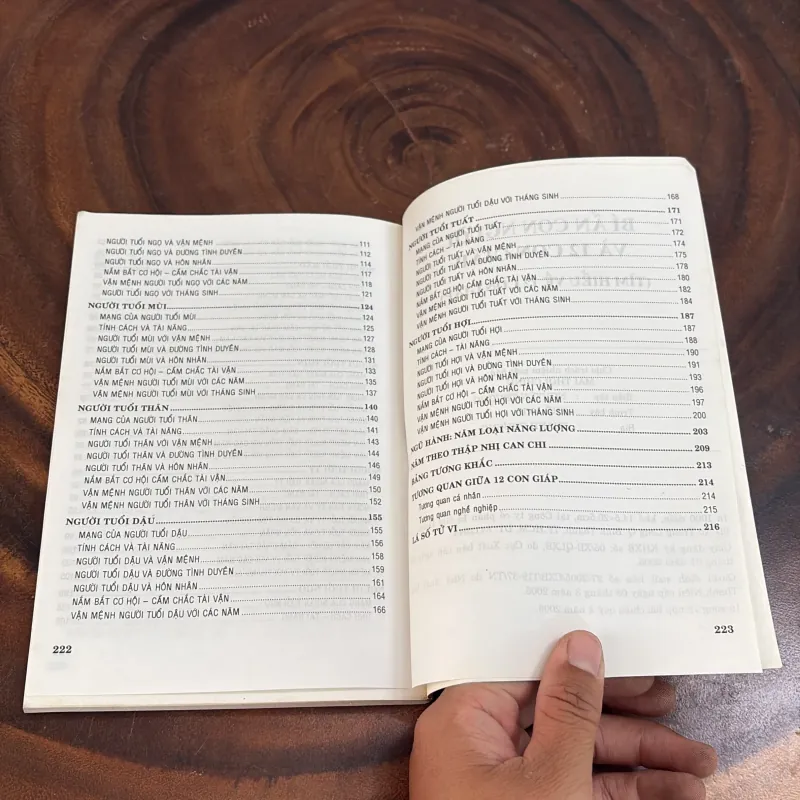 NGƯỜI TUỔI NGỌ VÀ VẬN MỆNH 111
NGƯỜI TUỔI NGỌ VÀ ĐƯỜNG TÌNH DUYÊN 112
NGƯỜI TUỔI NGỌ VÀ HÔN NHÂN 114
NẮM BẮT CƠ HỘI – CẦM CHẮC TÀI VẬN 117
VẬN MỆNH NGƯỜI TUỔI NGỌ VỚI CÁC NĂM 118
NGƯỜI TUỔI NGỌ VỚI THÁNG SINH 121
NGƯỜI TUỔI MÙI 124
MẠNG CỦA NGƯỜI TUỔI MÙI 124
TÍNH CÁCH VÀ TÀI NĂNG 125
NGƯỜI TUỔI MÙI VỚI VẬN MỆNH 127
NGƯỜI TUỔI MÙI VÀ ĐƯỜNG TÌNH DUYÊN 128
NGƯỜI TUỔI MÙI VÀ HÔN NHÂN 131
NẮM BẮT CƠ HỘI – CẦM CHẮC TÀI VẬN 133
VẬN MỆNH NGƯỜI TUỔI MÙI VỚI CÁC NĂM 135
VẬN MỆNH NGƯỜI TUỔI MÙI VỚI THÁNG SINH 137
NGƯỜI TUỔI THÂN 140
MẠNG CỦA NGƯỜI TUỔI THÂN 140
TÍNH CÁCH VÀ TÀI NĂNG 141
NGƯỜI TUỔI THÂN VỚI VẬN MỆNH 143
NGƯỜI TUỔI THÂN VÀ ĐƯỜNG TÌNH DUYÊN 144
NGƯỜI TUỔI THÂN VÀ HÔN NHÂN 146
NẮM BẮT CƠ HỘI – CẦM CHẮC TÀI VẬN 149
VẬN MỆNH NGƯỜI TUỔI THÂN VỚI CÁC NĂM 150
VẬN MỆNH NGƯỜI TUỔI THÂN VỚI THÁNG SINH 152
NGƯỜI TUỔI DẬU 155
MẠNG CỦA NGƯỜI TUỔI DẬU 155
TÍNH CÁCH VÀ TÀI NĂNG 156
NGƯỜI TUỔI DẬU VÀ VẬN MỆNH 158
NGƯỜI TUỔI DẬU VÀ ĐƯỜNG TÌNH DUYÊN 159
NGƯỜI TUỔI DẬU VÀ HÔN NHÂN 161
NẮM BẮT CƠ HỘI – CẦM CHẮC TÀI VẬN 164
VẬN MỆNH NGƯỜI TUỔI DẬU VỚI CÁC NĂM 166
222
VẬN MỆNH NGƯỜI TUỔI DẬU VỚI THÁNG SINH 168
NGƯỜI TUỔI TUẤT 171
MẠNG CỦA NGƯỜI TUỔI TUẤT 171
TÍNH CÁCH – TÀI NĂNG 172
NGƯỜI TUỔI TUẤT VÀ VẬN MỆNH 174
NGƯỜI TUỔI TUẤT VÀ ĐƯỜNG TÌNH DUYÊN 175
NGƯỜI TUỔI TUẤT VÀ HÔN NHÂN 178
NẮM BẮT CƠ HỘI CẦM CHẮC TÀI VẬN 180
VẬN MỆNH NGƯỜI TUỔI TUẤT VỚI CÁC NĂM 182
VẬN MỆNH NGƯỜI TUỔI TUẤT VỚI THÁNG SINH 184
NGƯỜI TUỔI HỢI 187
MẠNG CỦA NGƯỜI TUỔI HỢI 187
TÍNH CÁCH – TÀI NĂNG 188
NGƯỜI TUỔI HỢI VÀ VẬN MỆNH 190
NGƯỜI TUỔI HỢI VÀ ĐƯỜNG TÌNH DUYÊN 191
NGƯỜI TUỔI HỢI VÀ HÔN NHÂN 193
NẮM BẮT CƠ HỘI – CẦM CHẮC TÀI VẬN 196
VẬN MỆNH NGƯỜI TUỔI HỢI VỚI CÁC NĂM 197
VẬN MỆNH NGƯỜI TUỔI HỢI VỚI THÁNG SINH 200
NGŨ HÀNH: NĂM LOẠI NĂNG LƯỢNG 203
NĂM THEO THẬP NHỊ CAN CHI 209
BẢNG TƯƠNG KHẮC 213
TƯƠNG QUAN GIỮA 12 CON GIÁP 214
Tương quan cá nhân 214
Tương quan nghề nghiệp 215
LÁ SỐ TỬ VI 216
223